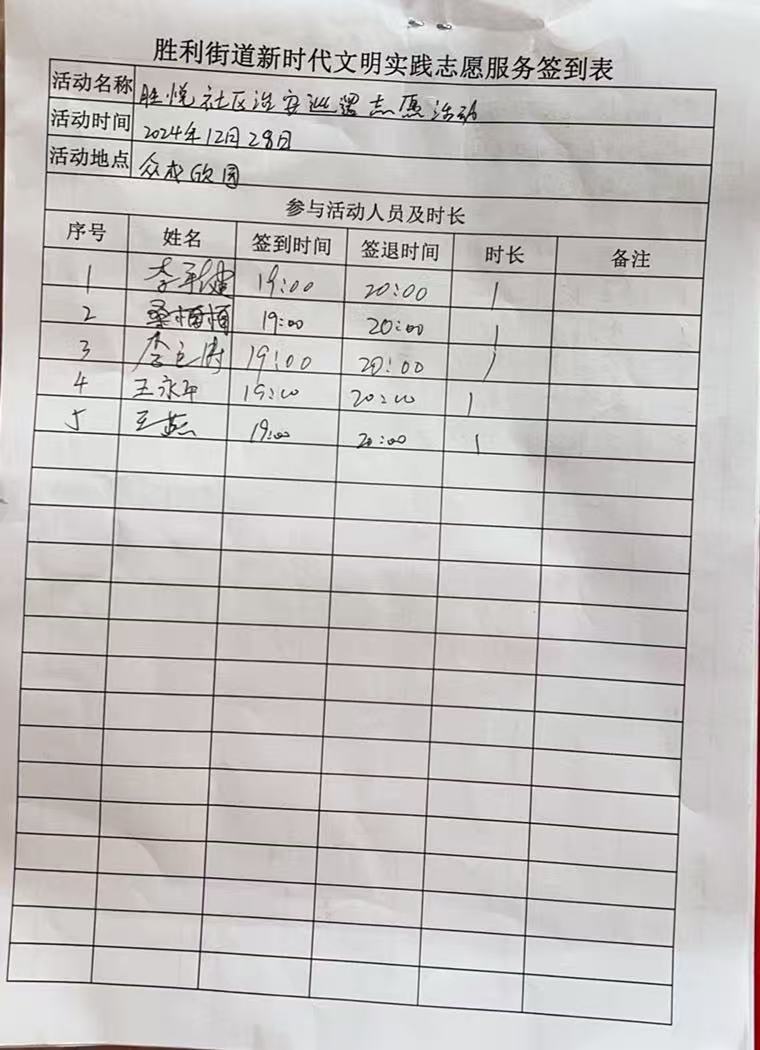 胜利街道新时代文明实践志愿服务签到表
活动名称 胜悦社区治安巡逻志愿活动
活动时间 2024年12月28日
活动地点 众成欣园
参与活动人员及时长
序号 姓名 签到时间 签退时间 时长 备注
1 19:00 20:00 1
2 桑楠楠 19:00 20:00 1
3 19:00 20:00 1
4 王永平 19:00 20:00 1
5 王燕 19:00 20:00 1